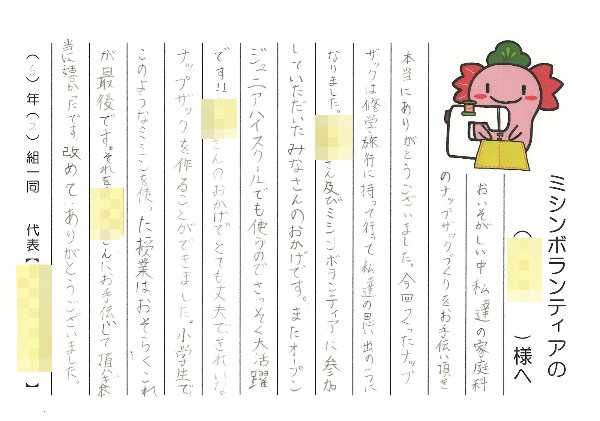 ミシンボランティアの
( )様へ
おいそがしい中 私達の家庭科
のナップザックづくりをお手伝い頂き
本当にありがとうございました。今回つくったナップ
ザックは修学旅行に持って行って私達の思い出の一つに
なりました。 さん及びミシンボランティアに参加
していただいたみなさんのおかげです。またオープン
ジュニアハイスクールでも使うのでさっそく大活躍
です!! さんのおかげで とても丈夫できれいな
ナップザックを作ることができました。小学生で
このようなミシンを使った授業はおそらくこれ
が最後です。それを さんにお手伝いして頂いて本
当に嬉かったです。改めてありがとうございました。
(6)年(2)組一同 代表【 】